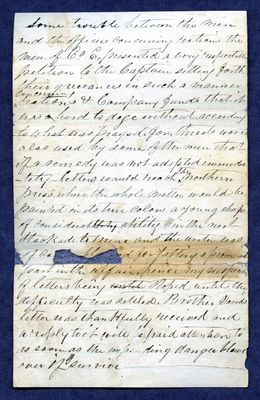 Some trouble between the Men
and the officers concerning rations the
Men of Co E, presented a very respectable
petition to the Captain setting forth
their grievances in such a manner
concerning
rations & Company funds that it
was hard to dodge without according
to what was prayed for threats were
also used by some of the men that
if a remedy was not adopted immedia
tely letters would reach the Northern
press where the whole matter would be
painted in its true colors a young chap
of considerable ability in the next
and the writer
of Co for taking a prominent
part in the affair hence my
of letters being stoped until the
difficulty was settled. Brother
letter was thankfully received and
a reply to it will be paid attention to
as soon as the impending danger blows
over if I survive